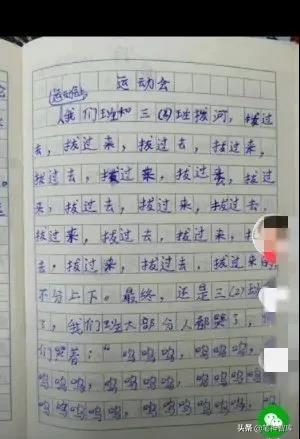 运动会
运动会
我们班和三(4)班拔河，拔过
去，拔过来，拔过去，拔过来，
拔过去，拔过来，拔过去，拔过
来，拔过去，拔过来，拔过去，
拔过来，拔过去，拔过来，拔过
去，拔过来，拔过去，拔过来的
不分上下。最终，还是三(2)班
了，我们班大部分人都哭了，
们哭着：“呜呜呜，呜呜呜，
呜呜呜，呜呜呜，呜呜呜，
呜呜呜，呜呜呜，呜呜呜，
头条 @笔神智库